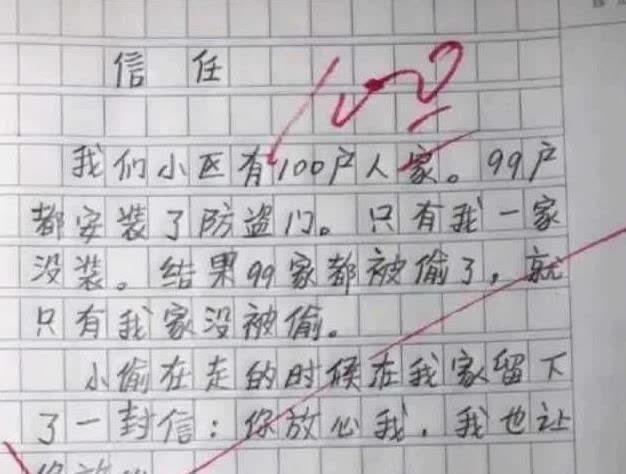 信任
100
我们小区有100户人家。99户
都安装了防盗门。只有我一家
没装。结果99家都被偷了，就
只有我家没被偷。
小偷在走的时候在我家留下
了一封信：你放心我，我也让